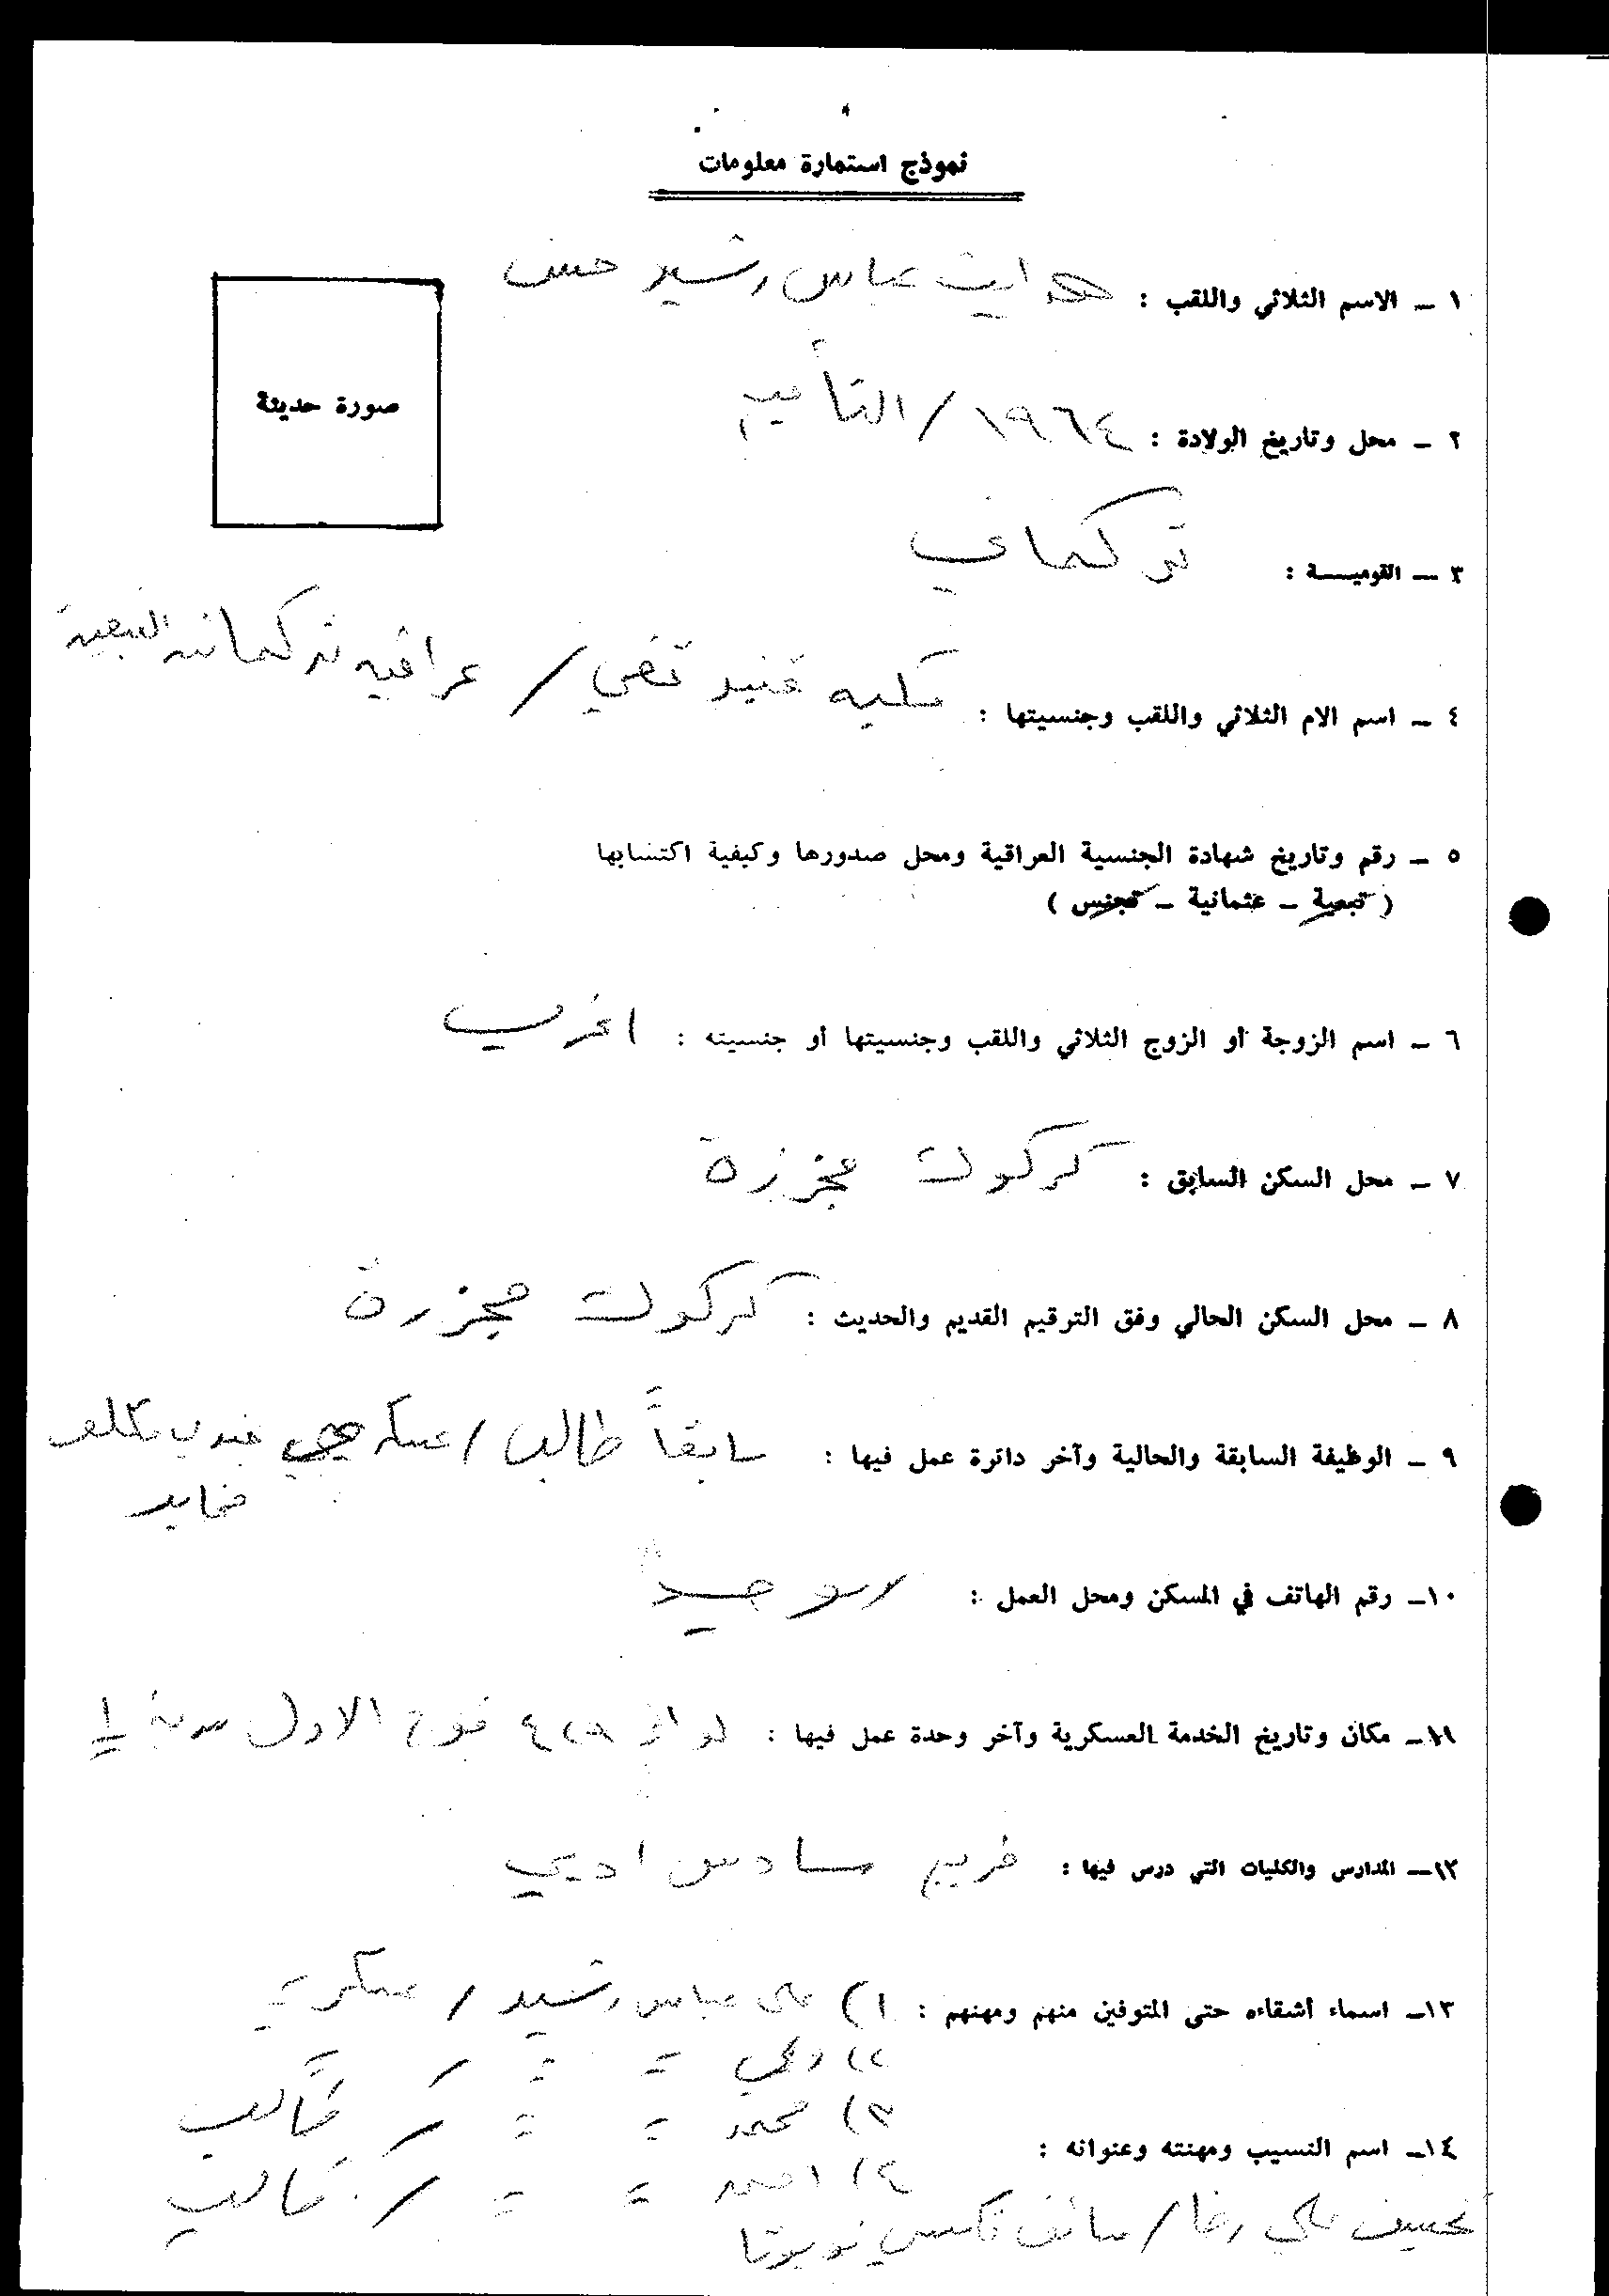 نموذج استمارة معلومات
١ – الاسم الثلاثي واللقب : هدايت عباس رشيد حسن
صورة حديثة
٢ – محل وتاريخ الولادة : ١٩٦٤ / التأميم
٣ – القوميــــة : تركماني
٤ – اسم الام الثلاثي واللقب وجنسيتها : / عراقيه تركمانيه التبعية
٥ – رقم وتاريخ شهادة الجنسية العراقية ومحل صدورها وكيفية اكتسابها
( تبعية – عثمانية – تجنس )
٦ – اسم الزوجة أو الزوج الثلاثي واللقب وجنسيتها أو جنسيته : اعزب
٧ – محل السكن السابق : كركوك
٨ – محل السكن الحالي وفق الترقيم القديم والحديث : كركوك
٩ – الوظيفة السابقة والحالية وآخر دائرة عمل فيها : سابقاً طالب / جندي مكلف
مخابر
١٠– رقم الهاتف في المسكن ومحل العمل : لا يوجد
١١– مكان وتاريخ الخدمة العسكرية وآخر وحدة عمل فيها : لواء ٤٢٩ فوج الاول سرية ١
١٢– المدارس والكليات التي درس فيها : خريج سادس ادبي
١٣– اسماء أشقاءه حتى المتوفين منهم ومهنهم : ١) علي عباس رشيد / عسكري
٢) = = / =
٣) محمد = = / طالب
٤) احمد = = / طالب
١٤– اسم النسيب ومهنته وعنوانه :
تحسين علي رضا / سائق تاكسي تويوتا